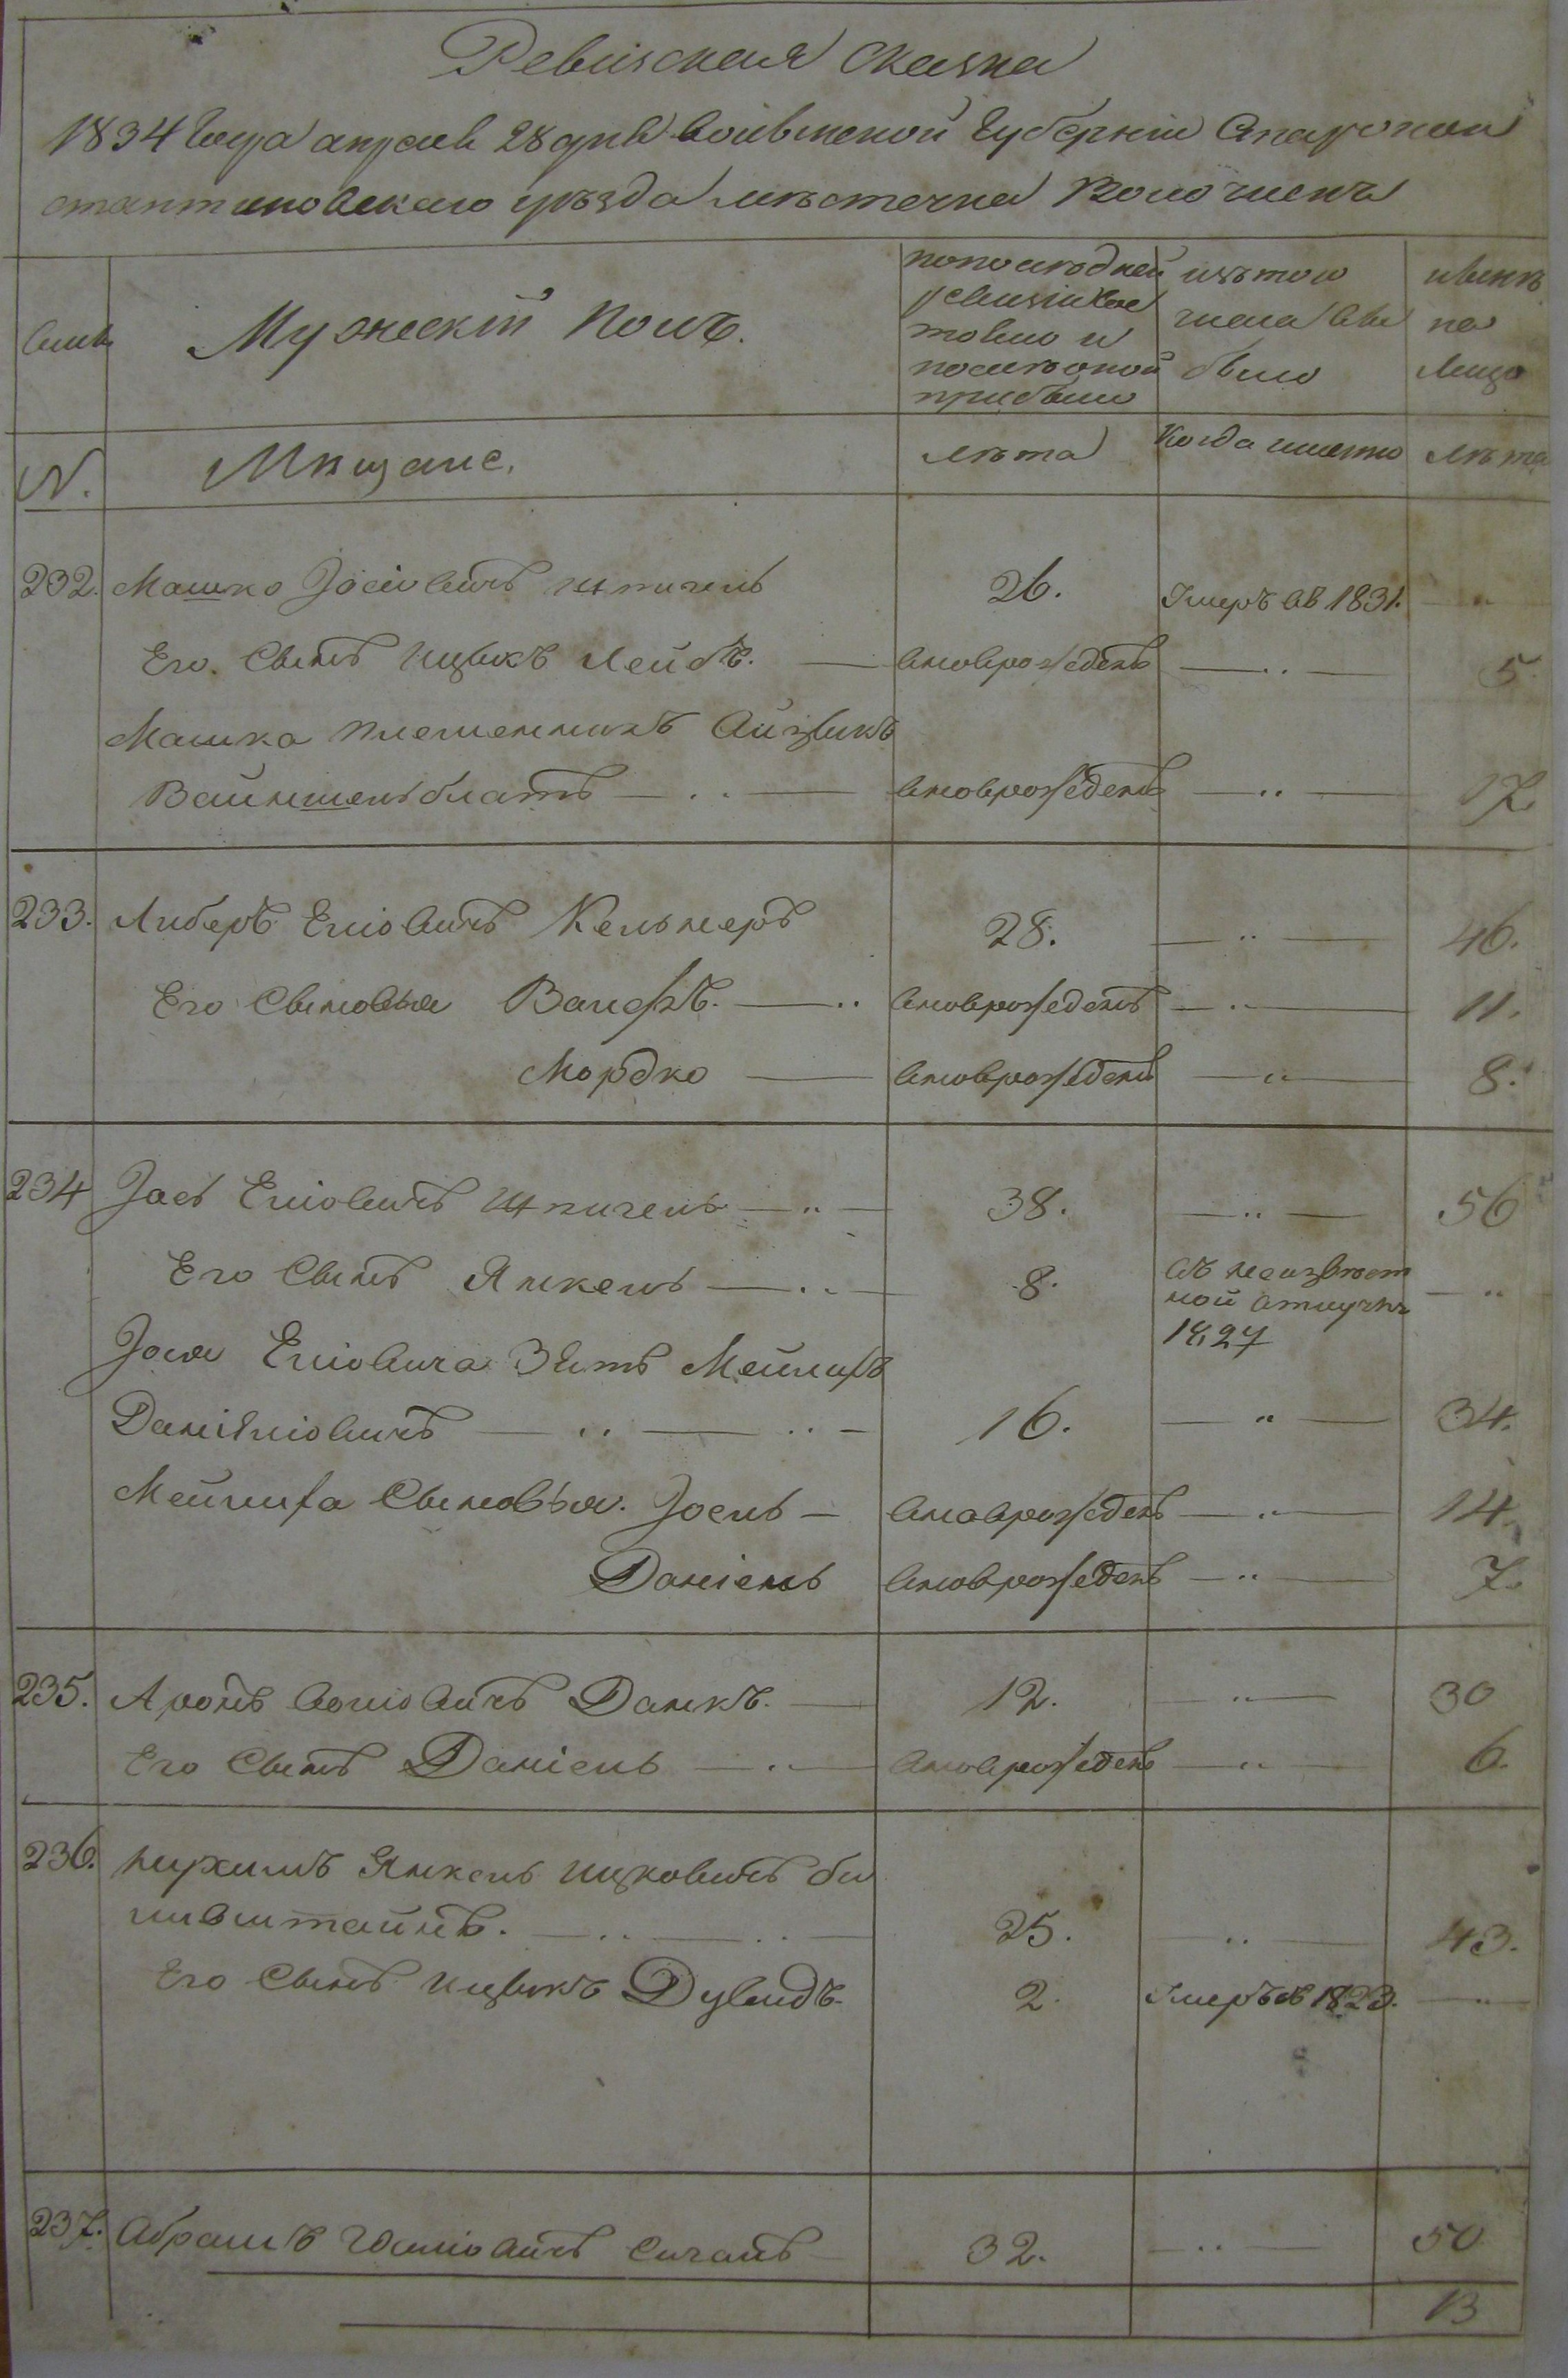 Ревизская Сказка
1834 года апреля 28 дня Волынской Губернии Старокон
стантиновского уѣзда мѣстечка Волочискъ
Семьи
Мужескій Полъ.
по последней
ревизіи Сос
тояло и
после оной
прибыло
изъ того
числа вы
было
ныне
на
Лицо
N.
Мѣщане.
лѣта
Когда именно
лѣта
232. Машко Iосiовичъ Шпигель 26. Умеръ въ 1831. — "
Его. Сынъ Ицыкъ Лейбъ. — вновьрожденъ — " — 5
Машка племенникъ Айзыкъ
Вайншельблатъ — " — вновьрожденъ — " — 17.
233. Либеръ Еліовичъ Кельнеръ 28. — " — 46.
Его Сыновья Волфъ. — " вновьрожденъ — " — 11.
Мордко — вновьрожденъ — " — 8.
234 Iось Еліовичъ Шпигель — " — 38. — " — 56
Его Сынъ Янкель — " — 8. въ неизвѣст
ной отлучкѣ — "
1827
Iося Еліовича Зять Мейлихъ
Даніліовичъ — " — " — 16. — " — 34.
Мейлиха Сыновья. Iосель — вновьрожденъ — " — 14.
Даніель вновьрожденъ — " — 7.
235. Аронъ Данкъ. — 12. — " — 30
Его Сынъ Даніель — " — вновьрожденъ — " — 6.
236. Нухимъ Янкель Ицковичъ би
ливштайнъ. — " — " — 25. " — 43.
Его Сынъ Ицыкъ Дувидъ. 2. Умеръ въ 1823. — "
237. Абрамъ Сиганъ 32. — " — 50
13